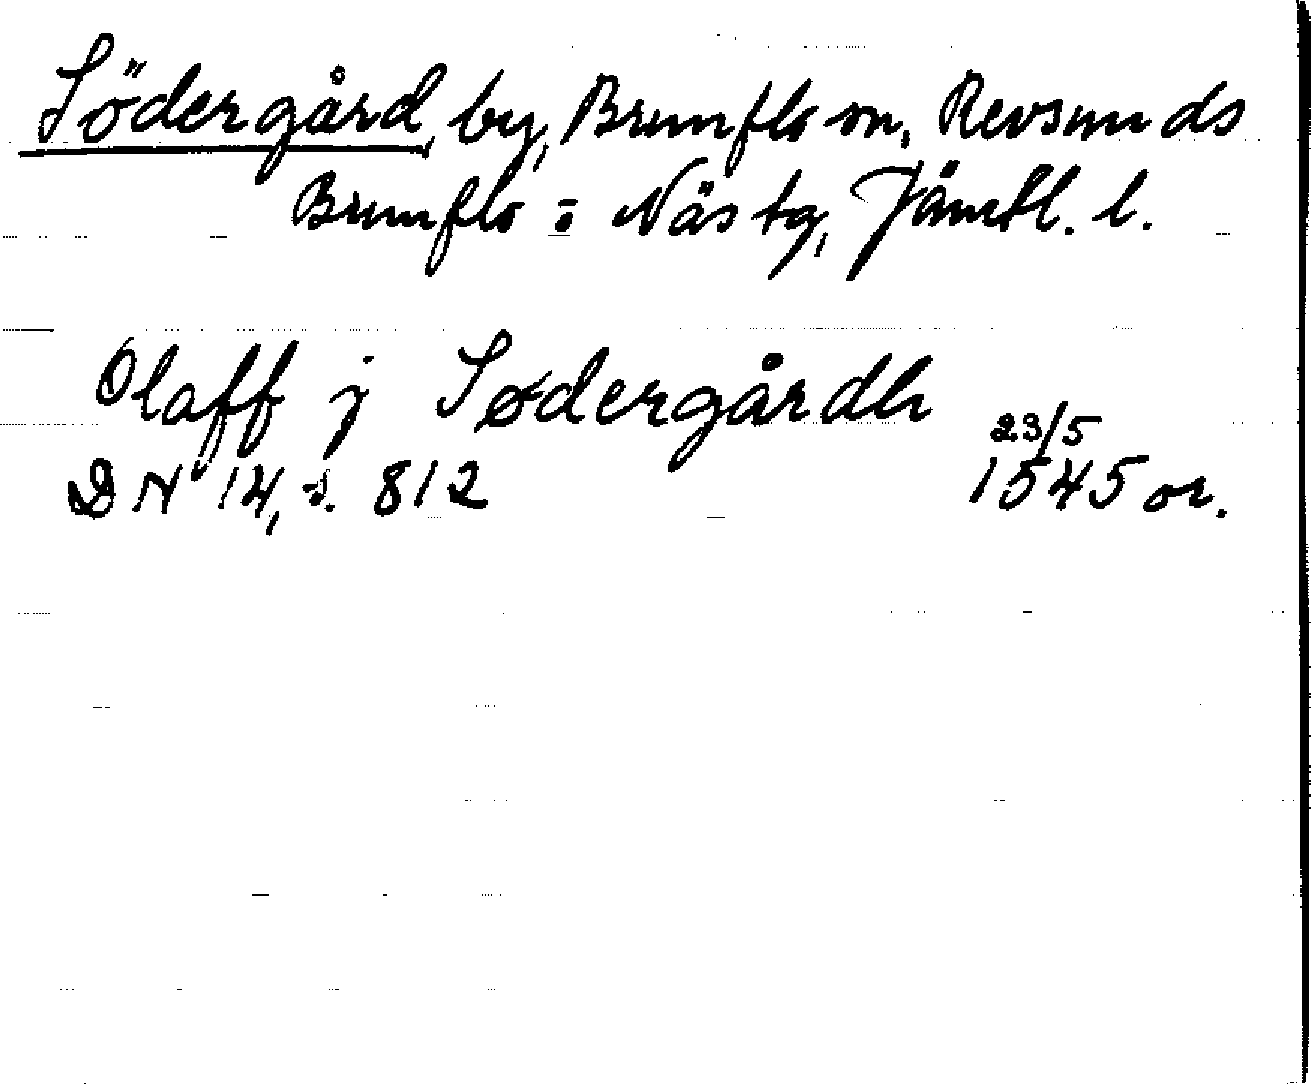 Södergård, by, Brunflo sn, Revsunds
Brunflo o Näs tg, Jämtl. l.
Olaff j Sødergårdh
23/5
DN 14, s. 812 1545 or.